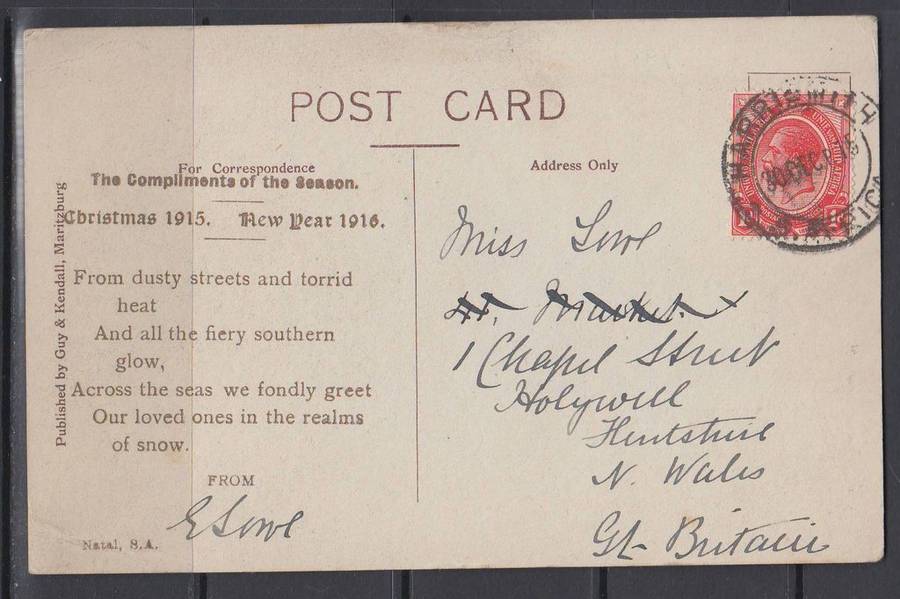 POST CARD
For Correspondence
The Compliments of the Season.
Christmas 1915. New Year 1916.
From dusty streets and torrid
heat
And all the fiery southern
glow,
Across the seas we fondly greet
Our loved ones in the realms
of snow.
FROM
E Lowe
Natal, S.A.
Published by Guy & Kendall, Maritzburg
Address Only
HARRISMITH
30 DEC
Miss Lowe
41, Market
1 Chapel Street
Holywell
Flintshire
N. Wales
Gt Britain